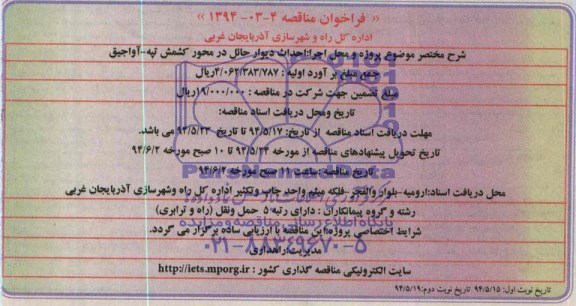 « فراخوان مناقصه ۴-۰۳-۱۳۹۴ »
اداره کل راه و شهرسازی آذربایجان غربی
شرح مختصر موضوع پروژه و محل اجرا:احداث دیوار حائل در محور کشمش تپه-آواجیق
جمع مبلغ بر آورد اولیه : ۲/۰۶۲/۳۸۳/۷۸۷ریال
مبلغ تضمین جهت شرکت در مناقصه : ۱۹/۰۰۰/۰۰۰ریال
تاریخ ومحل دریافت اسناد مناقصه:
مهلت دریافت اسناد مناقصه از تاریخ: ۹۴/۵/۱۷ تا تاریخ ۹۴/۵/۲۳ می باشد.
تاریخ تحویل پیشنهادهای مناقصه از مورخه ۹۴/۵/۲۴ تا ۱۰ صبح مورخه ۹۴/۶/۲
تاریخ مناقصه :ساعت ۱۱ صبح مورخه ۹۴/۶/۲
محل دریافت اسناد:ارومیه-بلوار والفجر-فلکه میثم واحد چاپ وتکثیر اداره کل راه وشهرسازی آذربایجان غربی
رشته و گروه پیمانکاران : دارای رتبه ۵ حمل ونقل (راه و ترابری)
شرایط اختصاصی پروژه:این مناقصه با ارزیابی ساده برگزار می گردد.
مدیریت:راهداری
سایت الکترونیکی مناقصه گذاری کشور : http://iets.mporg.ir
تاریخ نوبت اول: ۹۴/۵/۱۵ تاریخ نوبت دوم:۹۴/۵/۱۹
ParsNamadData
پایگاه اطلاع رسانی مناقصه و مزایده
۰۲۱-۸۸۳۴۹۶۷۰-۵